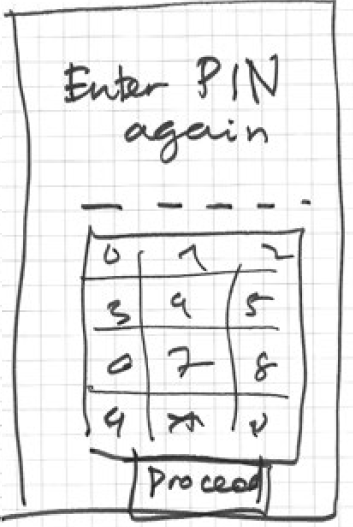 Enter PIN
again
0 1 2
3 4 5
0 7 8
9 *
Proceed